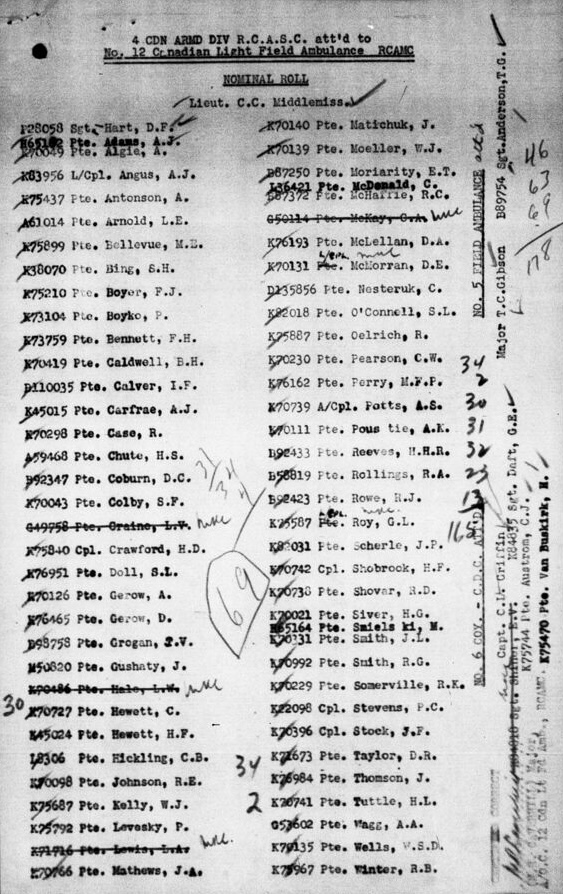 4 CDN ARMD DIV R.C.A.S.C. att'd to
No. 12 Canadian Light Field Ambulance RCAMC
NOMINAL ROLL
Lieut. C.C. Middlemiss.
F28058 Sgt. Hart, D.F.
H65102 Pte. Adams, A.J.
K70049 Pte. Algie, A.
K83956 L/Cpl. Angus, A.J.
K75437 Pte. Antonson, A.
A61014 Pte. Arnold, L.E.
K75899 Pte. Bellevue, M.E.
K38070 Pte. Bing, S.H.
K75210 Pte. Boyer, F.J.
K73104 Pte. Boyko, P.
K73759 Pte. Bennett, F.H.
K70419 Pte. Caldwell, B.H.
D110035 Pte. Calver, I.F.
K45015 Pte. Carfrae, A.J.
K70298 Pte. Case, R.
A59468 Pte. Chute, H.S.
B92347 Pte. Coburn, D.C.
K70043 Pte. Colby, S.F.
G49758 Pte. Craine, L.V.
K75840 Cpl. Crawford, H.D.
K76951 Pte. Doll, S.L.
K70126 Pte. Gerow, A.
K76465 Pte. Gerow, D.
B98758 Pte. Grogan, T.V.
M50820 Pte. Gushaty, J.
K70486 Pte. Hale, L.W.
30 K70727 Pte. Hewett, C.
K45024 Pte. Hewett, H.F.
L8306 Pte. Hickling, C.B.
K70098 Pte. Johnson, R.E.
K75687 Pte. Kelly, W.J.
K75792 Pte. Levesky, P.
K71716 Pte. Lewis, L.A.
K70766 Pte. Mathews, J.A.
K70140 Pte. Matichuk, J.
K70139 Pte. Moeller, W.J.
B87250 Pte. Moriarity, E.T.
L36421 Pte. McDonald, C.
B87372 Pte. McHaffie, R.C.
G50114 Pte. McKay, C.A.
K76193 Pte. McLellan, D.A.
K70131 Pte. McMorran, D.E.
D135856 Pte. Nesteruk, C.
K82018 Pte. O'Connell, S.L.
K75887 Pte. Oelrich, R.
K70230 Pte. Pearson, C.W.
K76162 Pte. Perry, M.F.P.
K70739 A/Cpl. Potts, A.S.
K70111 Pte. Pous tie, A.K.
B92433 Pte. Reeves, H.H.R.
B58819 Pte. Rollings, R.A.
B92423 Pte. Rowe, R.J.
K75587 Pte. Roy, G.L.
K82031 Pte. Scherle, J.P.
K70742 Cpl. Shobrook, H.F.
K70738 Pte. Shovar, R.D.
K70021 Pte. Siver, H.G.
H65164 Pte. Smiels ki, M.
K70331 Pte. Smith, J.L.
K70992 Pte. Smith, R.G.
K70229 Pte. Somerville, R.K.
K22098 Cpl. Stevens, P.C.
K70396 Cpl. Stock, J.F.
K71673 Pte. Taylor, D.R.
K76984 Pte. Thomson, J.
K70741 Pte. Tuttle, H.L.
G53602 Pte. Wagg, A.A.
K70135 Pte. Wells, W.S.D.
K75967 Pte. Winter, R.B.
69
34
2
34
2
30
31
32
23
13
NO. 5 FIELD AMBULANCE att'd
Major T.C.Gibson B89754 Sgt.Anderson,T.G.
46
63
69
178
NO. 6 COY. - C.D.C. ATT'D
Capt. C.L. Griffin K84835 Sgt. Daft, G.E.
K75744 Pte. Austrom, C.J.
K75470 Pte. Van Buskirk, H.
CERTIFIED CORRECT
Major,
O.C. 12 Cdn Lt Fd Amb., RCAMC